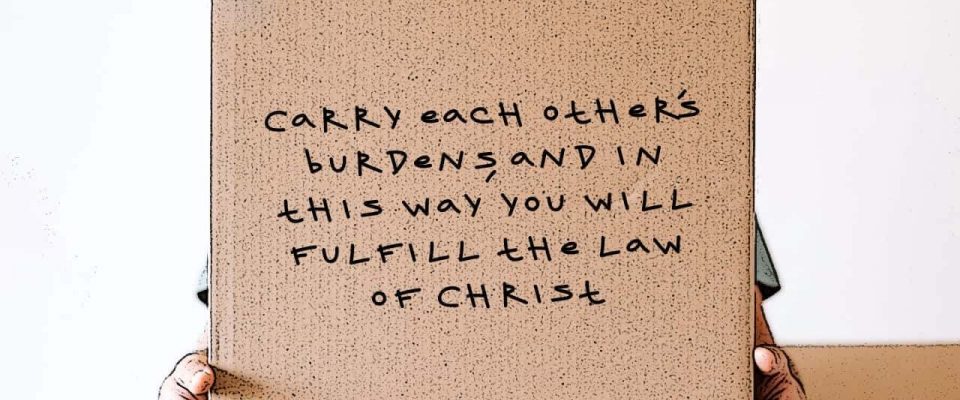 CARRY eACH OtHeR's
buRDeNs, AND IN
tHIS WAY YOU WILL
FULFILL tHe LAW
OF CHRISt